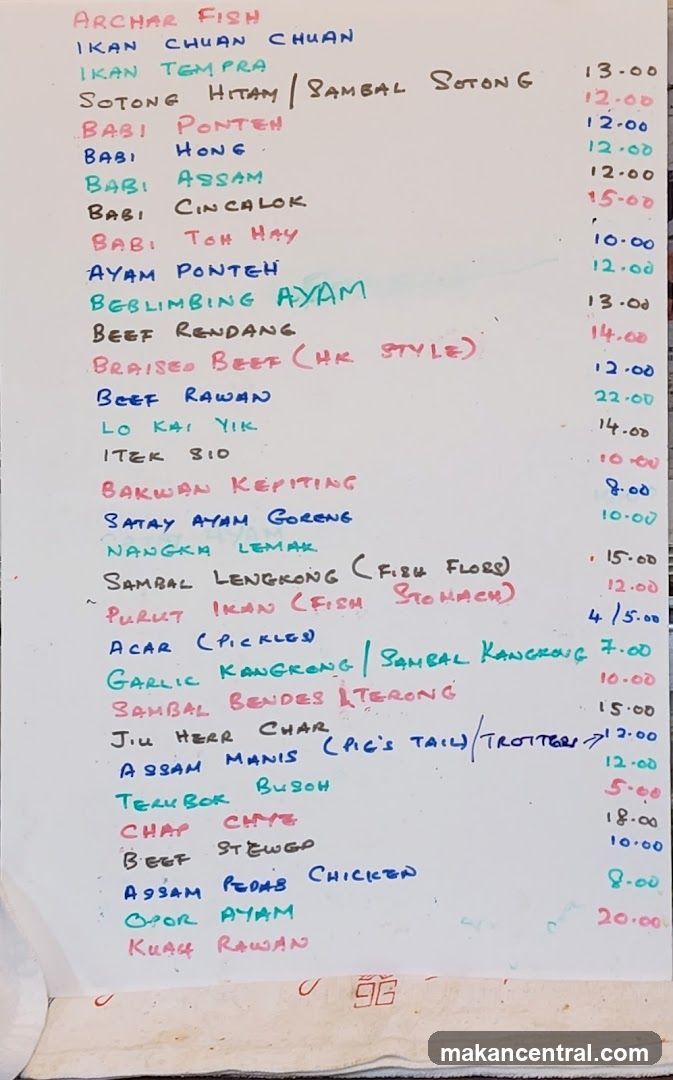 ARCHAR FISH
IKAN CHUAN CHUAN
IKAN TEMPRA
SOTONG HITAM / SAMBAL SOTONG 13.00
BABI PONTEH 12.00
BABI HONG 12.00
BABI ASSAM 12.00
BABI CINCALOK 12.00
BABI TOH HAY 15.00
AYAM PONTEH 10.00
BEBLIMBING AYAM 12.00
BEEF RENDANG 13.00
BRAISED BEEF (HK STYLE) 14.00
BEEF RAWAN 12.00
LO KAI YIK 22.00
ITEK SIO 14.00
BAKWAN KEPITING 10.00
SATAY AYAM GORENG 8.00
NANGKA LEMAK 10.00
SAMBAL LENGKONG (FISH FLOSS) 15.00
PURUT IKAN (FISH STOMACH) 12.00
ACAR (PICKLES) 4/5.00
GARLIC KANGKONG / SAMBAL KANGKONG 7.00
SAMBAL BENDES & TERONG 10.00
JIU HERR CHAR 15.00
ASSAM MANIS (PIG'S TAIL) / TROTTERS → 12.00
TERUBOK BUSOH 12.00
CHAP CHYE 5.00
BEEF STEWED 18.00
ASSAM PEDAS CHICKEN 10.00
OPOR AYAM 8.00
KUAH RAWAN 20.00
makancentral.com